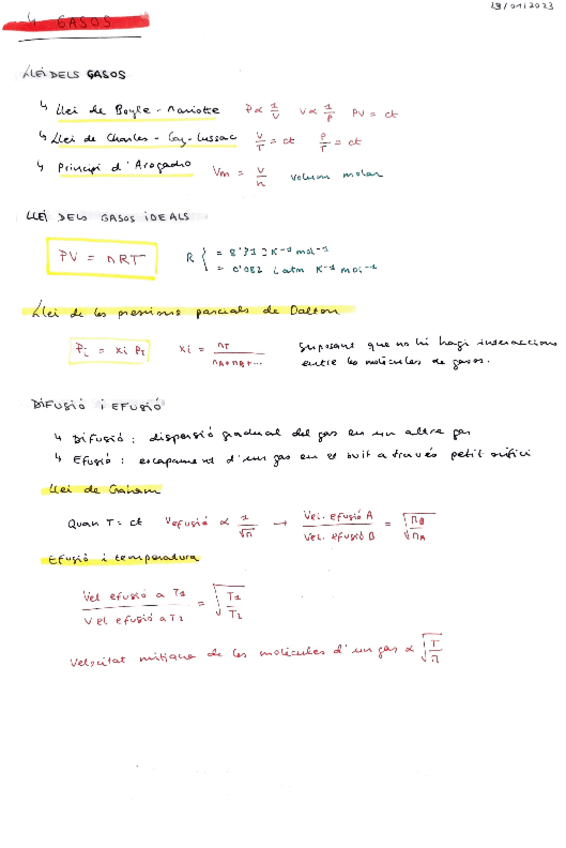 19/01/2023
4 GASOS
LLEI DELS GASOS
↳ Llei de Boyle - Mariotte P ∝ 1/V V ∝ 1/P PV = ct
↳ Llei de Charles - Gay-Lussac V/T = ct P/T = ct
↳ Principi d'Avogadro Vm = V/n volum molar
LLEI DELS GASOS IDEALS
PV = nRT R { = 8'31 J K⁻¹ mol⁻¹
= 0'082 L atm K⁻¹ mol⁻¹
Llei de les pressions parcials de Dalton
Pi = xi PT xi = nT/(nA+nB+...) Suposant que no hi hagi interaccions
entre les molècules de gasos.
DIFUSIÓ I EFUSIÓ
↳ DIFUSIÓ: dispersió gradual del gas en un altre gas
↳ EFUSIÓ: escapament d'un gas en el buit a través petit orifici
Llei de Graham
Quan T = ct Vefusió ∝ 1/√M → Vel. efusió A / Vel. efusió B = √(MB/MA)
Efusió i temperatura
Vel efusió a T1 / Vel efusió a T2 = √(T1/T2)
Velocitat mitjana de les molècules d'un gas ∝ √(T/M)